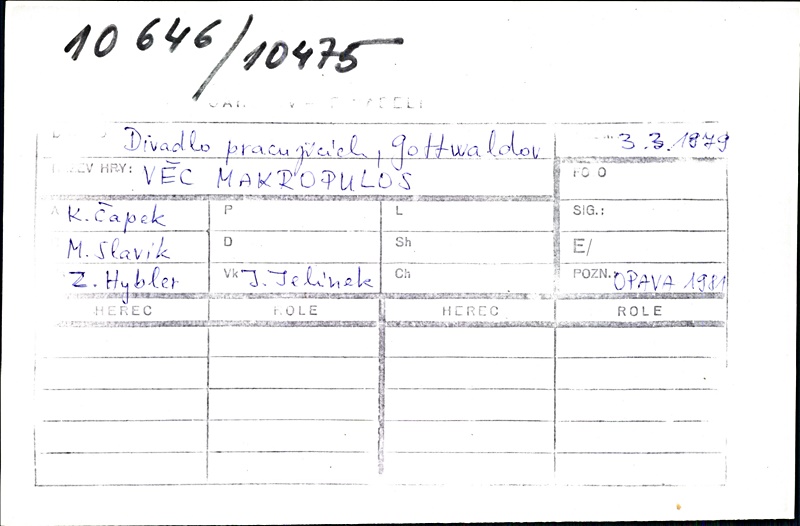 10 646/10475
Divadlo pracujících, Gottwaldov 3.3.1979
HRY: VĚC MAKROPULOS
K. Čapek P L SIG.:
M. Slavík D Sh E/
Z. Hybler Vk J. Jelínek Ch POZN.: OPAVA 1981
HEREC ROLE HEREC ROLE